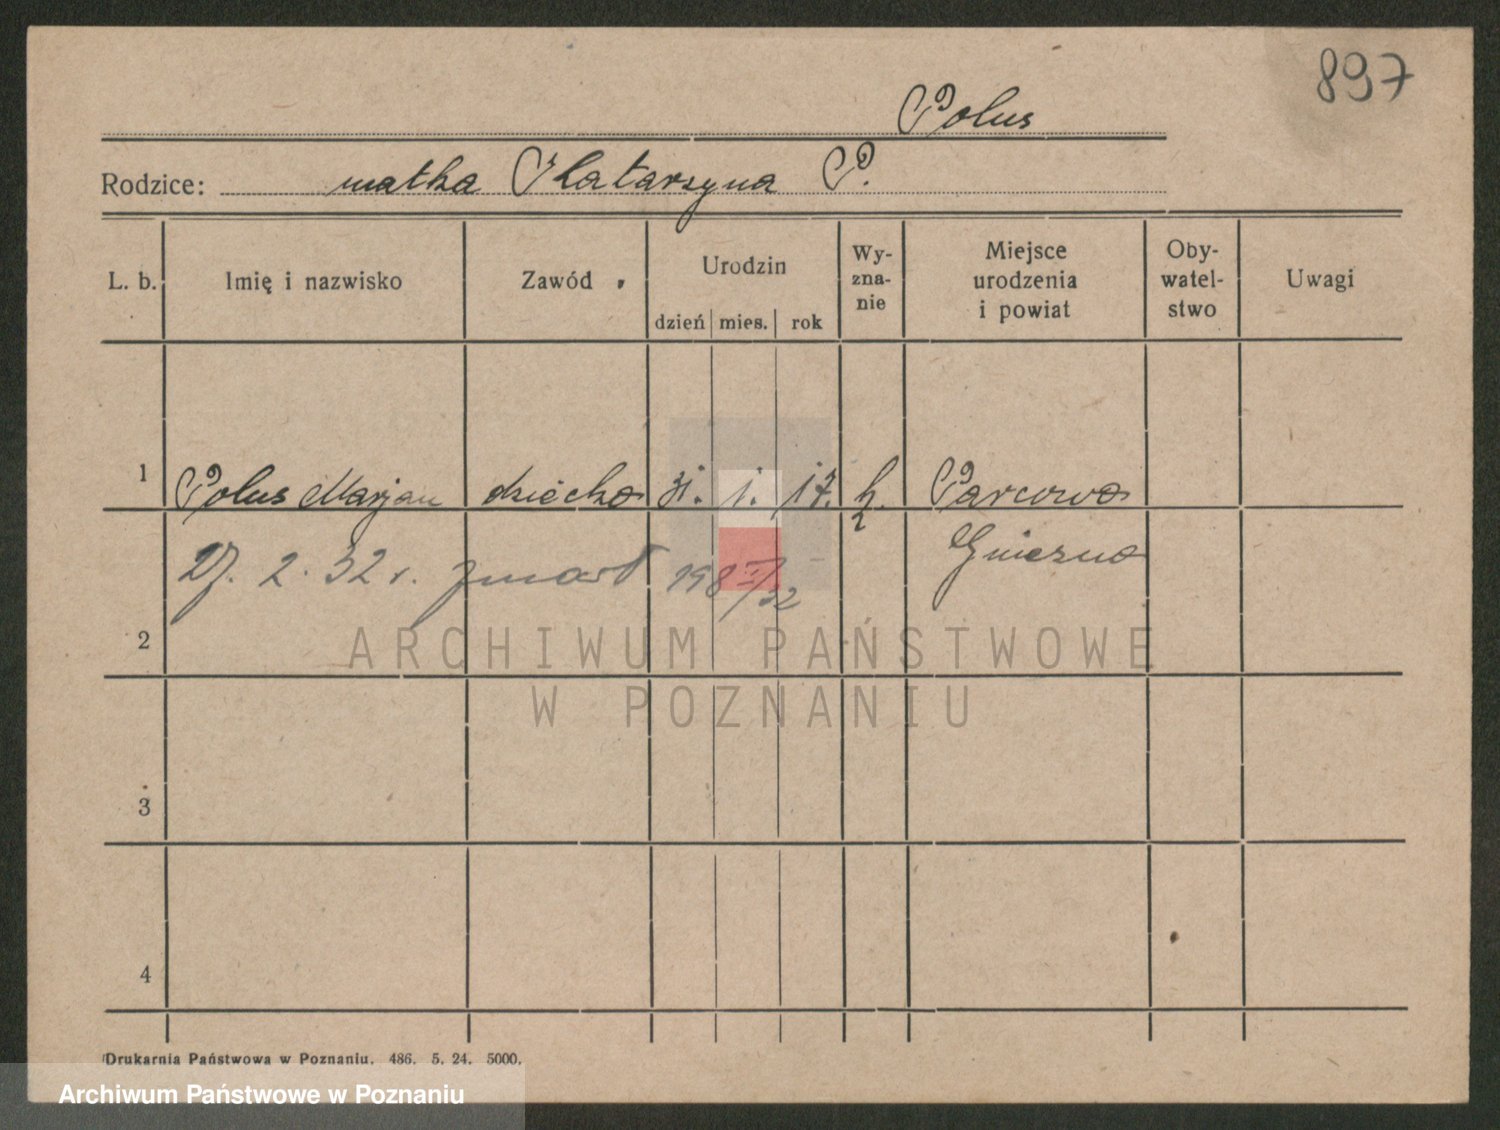 897
Polus
Rodzice: matka Katarzyna P.
L. b. Imię i nazwisko Zawód Urodzin dzień mies. rok Wy-zna-nie Miejsce urodzenia i powiat Oby-watel-stwo Uwagi
1 Polus Marjan dziecko 31. 1. 17. k. Parcowo
Gniezno
27. 2. 32 r. zmarł 198 I/32
2
ARCHIWUM PAŃSTWOWE
W POZNANIU
3
4
Drukarnia Państwowa w Poznaniu. 486. 5. 24. 5000.
Archiwum Państwowe w Poznaniu